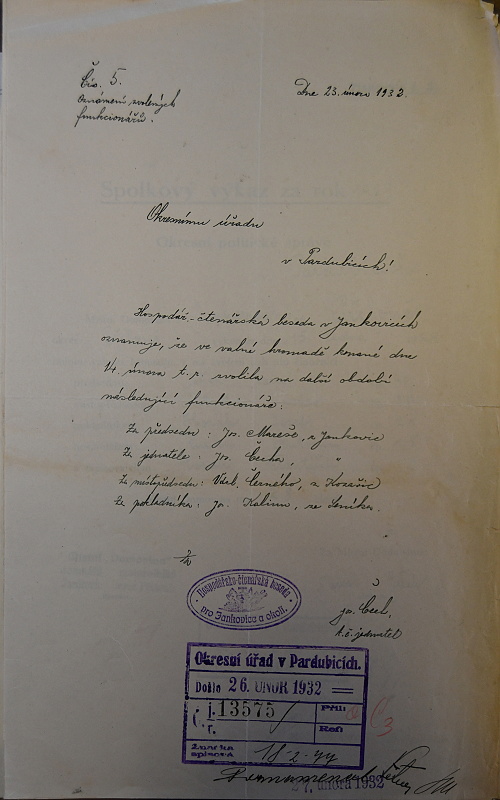 Čís. 5.
Oznámení zvolených
funkcionářů.
Dne 23. února 1932.
Okresnímu úřadu
v Pardubicích!
Hospodář.-čtenářská beseda v Jankovicích
oznamuje, že ve valné hromadě konané dne
14. února t. r. zvolila na další období
následující funkcionáře:
Za předsedu: Jos. Mareše, z Jankovic
Za jednatele: Jos. Čecha, "
Za místopředsedu: Václ. Černého, z Kozašic
Za pokladníka: Jos. Kalinu, ze Seníka.
Hospodářsko-čtenářská beseda
pro Jankovice a okolí.
Jos. Čech,
t. č. jednatel
Okresní úřad v Pardubicích.
Došlo 26. ÚNOR 1932
Č. j. 13575
Příl:
r.
Ref:
Značka
spisová 18-2-44
27. února 1932